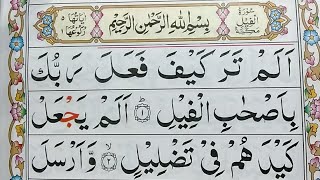 سُورَةُ الْفِيلِ مَكِّيَّةٌ
بِسْمِ اللهِ الرَّحْمٰنِ الرَّحِيْمِ
اَلَمْ تَرَ كَيْفَ فَعَلَ رَبُّكَ
بِاَصْحٰبِ الْفِيْلِ ۱ اَلَمْ يَجْعَلْ
كَيْدَهُمْ فِيْ تَضْلِيْلٍ ۲ وَّاَرْسَلَ